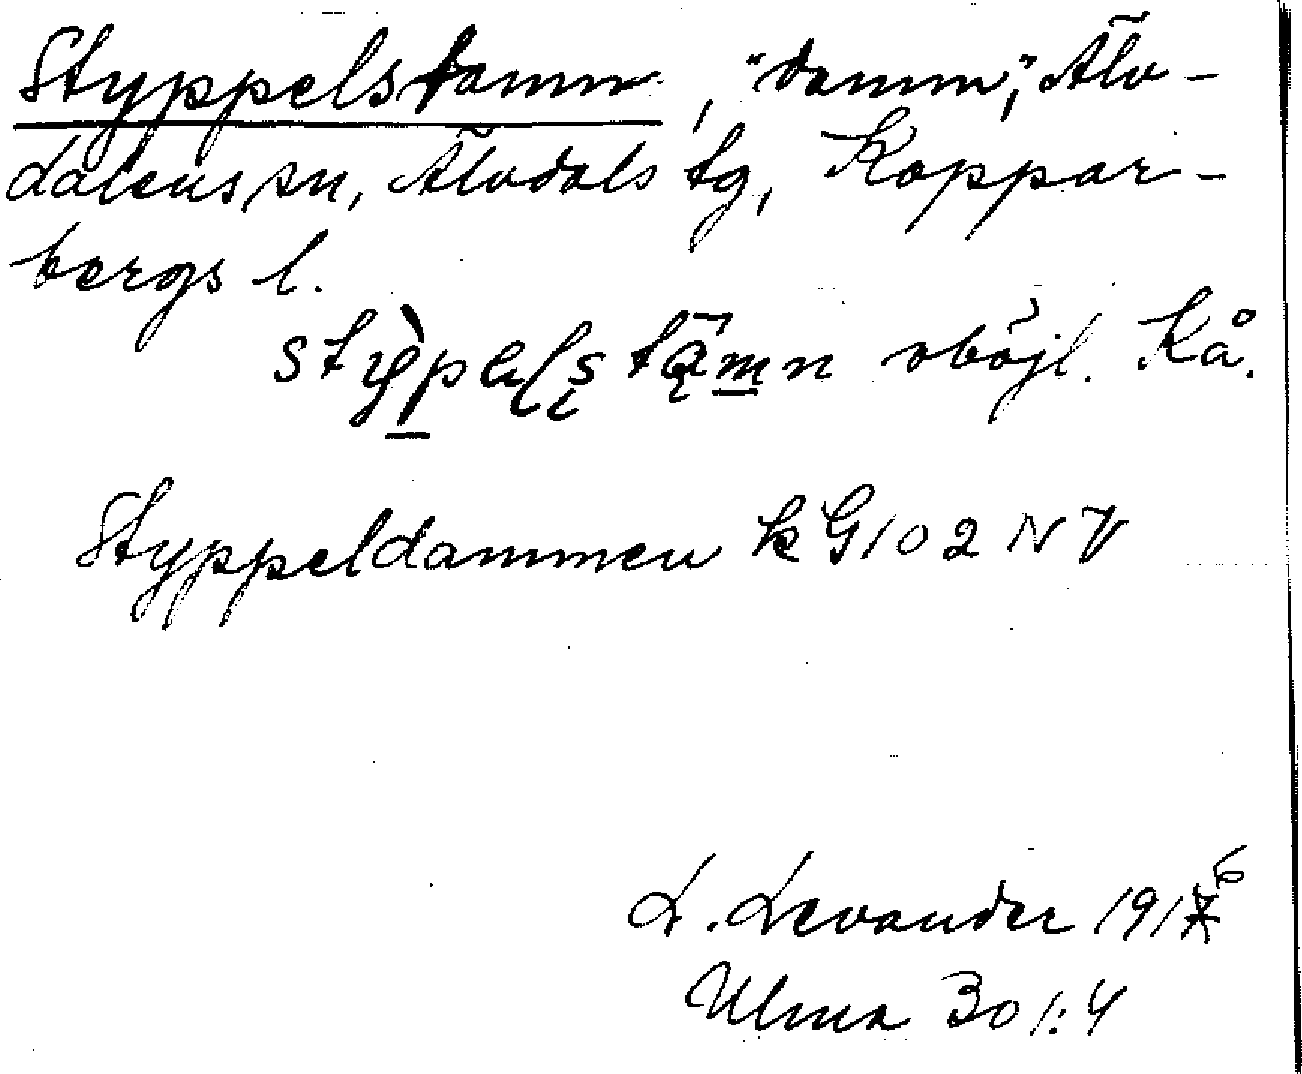 Styppelstamn, "damm", Älv-
dalens sn, Älvdals tg, Koppar-
bergs l.
stỳpels tą̄mn oböjl. Kå.
Styppeldammen k G102 NV
L. Levander 1916
Ulma 301:4